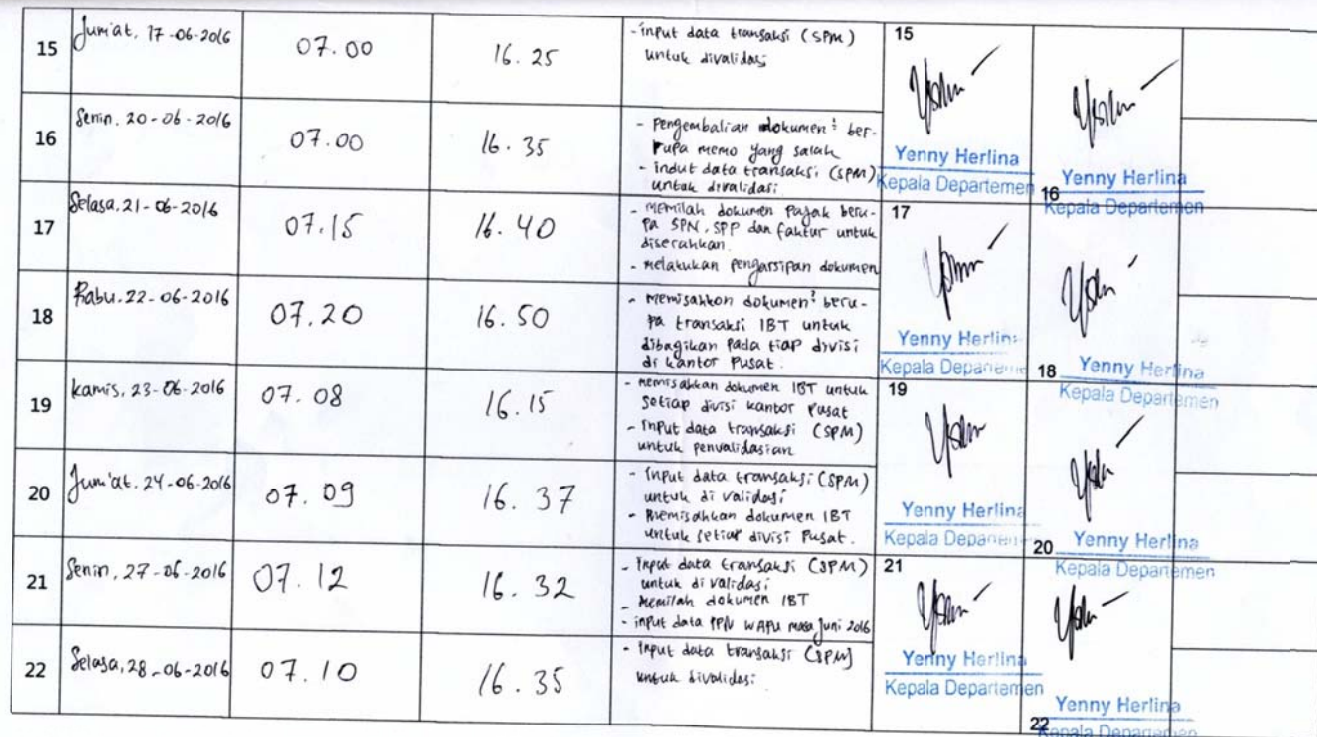 15 Jum'at, 17-06-2016 07.00 16.25
- input data transaksi (SPM)
untuk divalidasi
15
Yenny Herlina
Kepala Departemen
16 Senin, 20-06-2016 07.00 16.35
- pengembalian dokumen² ber-
rupa memo yang salah
- indut data transaksi (SPM)
untuk divalidasi
16
Yenny Herlina
Kepala Departemen
17 Selasa, 21-06-2016 07.15 16.40
- memilah dokumen pajak beru-
pa SPN, SPP dan faktur untuk
diserahkan.
- melakukan pengarsipan dokumen
17
Yenny Herlina
Kepala Departeme
18 Rabu, 22-06-2016 07.20 16.50
- memisahkan dokumen² beru-
pa transaksi IBT untuk
dibagikan pada tiap divisi
di kantor pusat.
18
Yenny Herlina
Kepala Departemen
19 Kamis, 23-06-2016 07.08 16.15
- memisahkan dokumen IBT untuk
setiap divisi kantor pusat
- Input data transaksi (SPM)
untuk penvalidasian
19
Yenny Herlina
Kepala Departemen
20 Jum'at, 24-06-2016 07.09 16.37
- Input data transaksi (SPM)
untuk di validasi
- Memisahkan dokumen IBT
untuk setiap divisi Pusat.
20
Yenny Herlina
Kepala Departemen
21 Senin, 27-06-2016 07.12 16.32
- Input data transaksi (SPM)
untuk di validasi
- Memilah dokumen IBT
- input data PPN WAPU masa Juni 2016
21
Yenny Herlina
Kepala Departemen
22 Selasa, 28-06-2016 07.10 16.35
- Input data transaksi (SPM)
untuk divalidasi
22
Yenny Herlina
Kepala Departemen